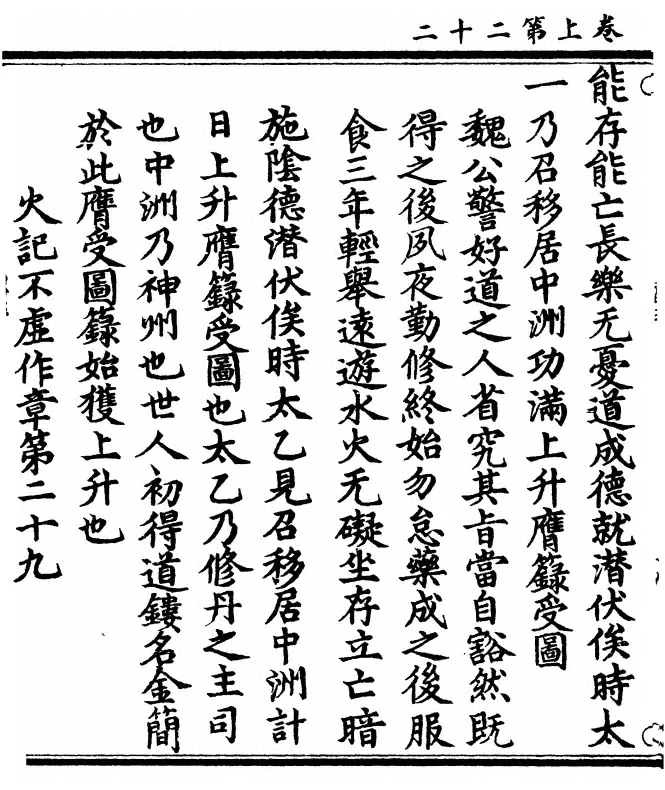 卷上第二十二
能存能亡長樂无憂道成德就潛伏俟時太
一乃召移居中洲功滿上升膺籙受圖
魏公警好道之人省究其旨當自豁然既
得之後夙夜勤修終始勿怠藥成之後服
食三年輕舉遠遊水火无礙坐存立亡暗
施陰德潛伏俟時太乙見召移居中洲計
日上升膺籙受圖也太乙乃修丹之主司
也中洲乃神州也世人初得道鏤名金簡
於此膺受圖籙始獲上升也
火記不虛作章第二十九